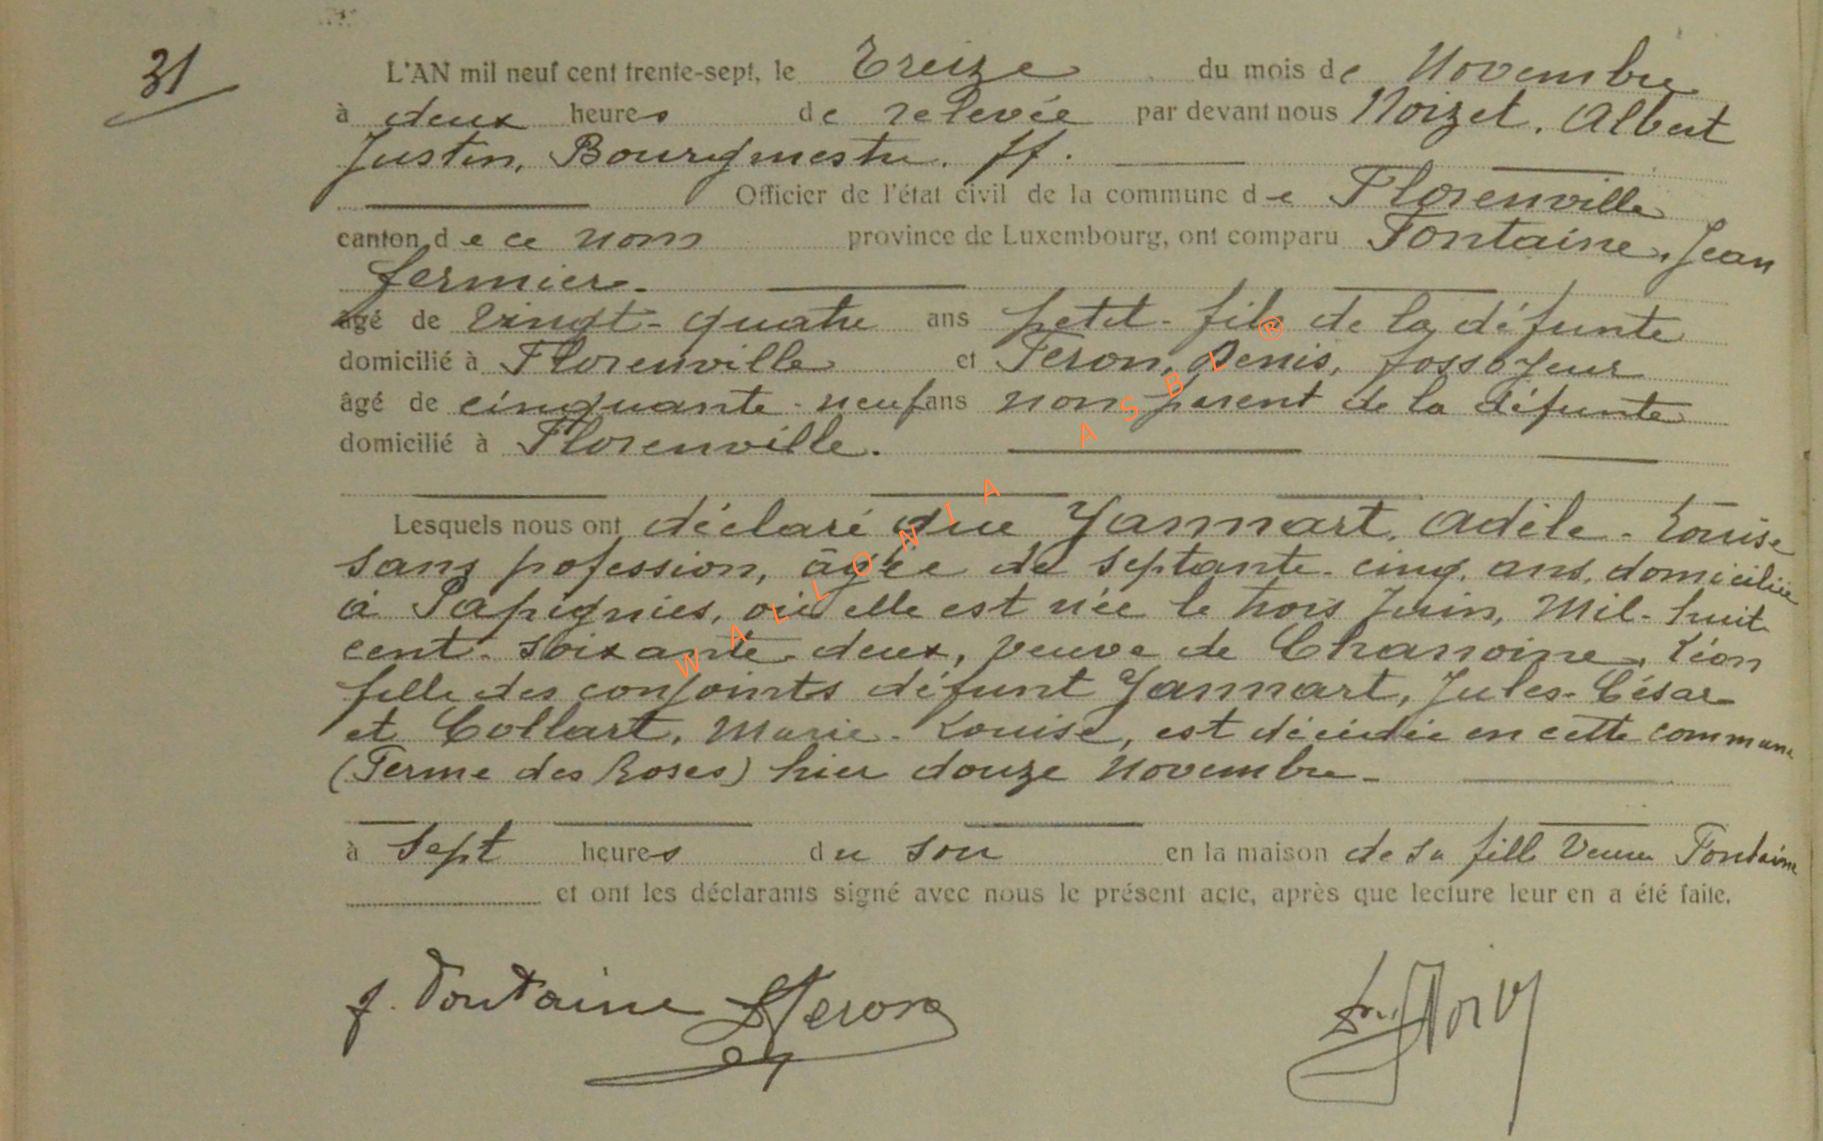 31
L'AN mil neuf cent trente-sept, le Treize du mois de Novembre
à deux heures de relevée par devant nous Noizet. Albert
Justin, Bourgmestre. ff.
Officier de l'état civil de la commune de Florenville
canton de ce nom province de Luxembourg, ont comparu Fontaine, Jean
fermier.
âgé de vingt-quatre ans petit-fils de la défunte
domicilié à Florenville et Feron, Denis, fossoyeur
âgé de cinquante-neuf ans non parent de la défunte
domicilié à Florenville.
Lesquels nous ont déclaré que Jannart, Adèle-Louise
sans profession, âgée de septante-cinq ans, domiciliée
à Papignies, où elle est née le trois Juin, Mil-huit
cent-soixante-deux, veuve de Chanoine, Léon
fille des conjoints défunt Jannart, Jules-César
et Collart, Marie-Louise, est décédée en cette commune
(Ferme des Roses) hier douze Novembre-
à sept heures du soir en la maison de sa fille Veuve Fontaine
et ont les déclarants signé avec nous le présent acte, après que lecture leur en a été faite.
J. Fontaine DFeron
WALLONIA ASBL ®